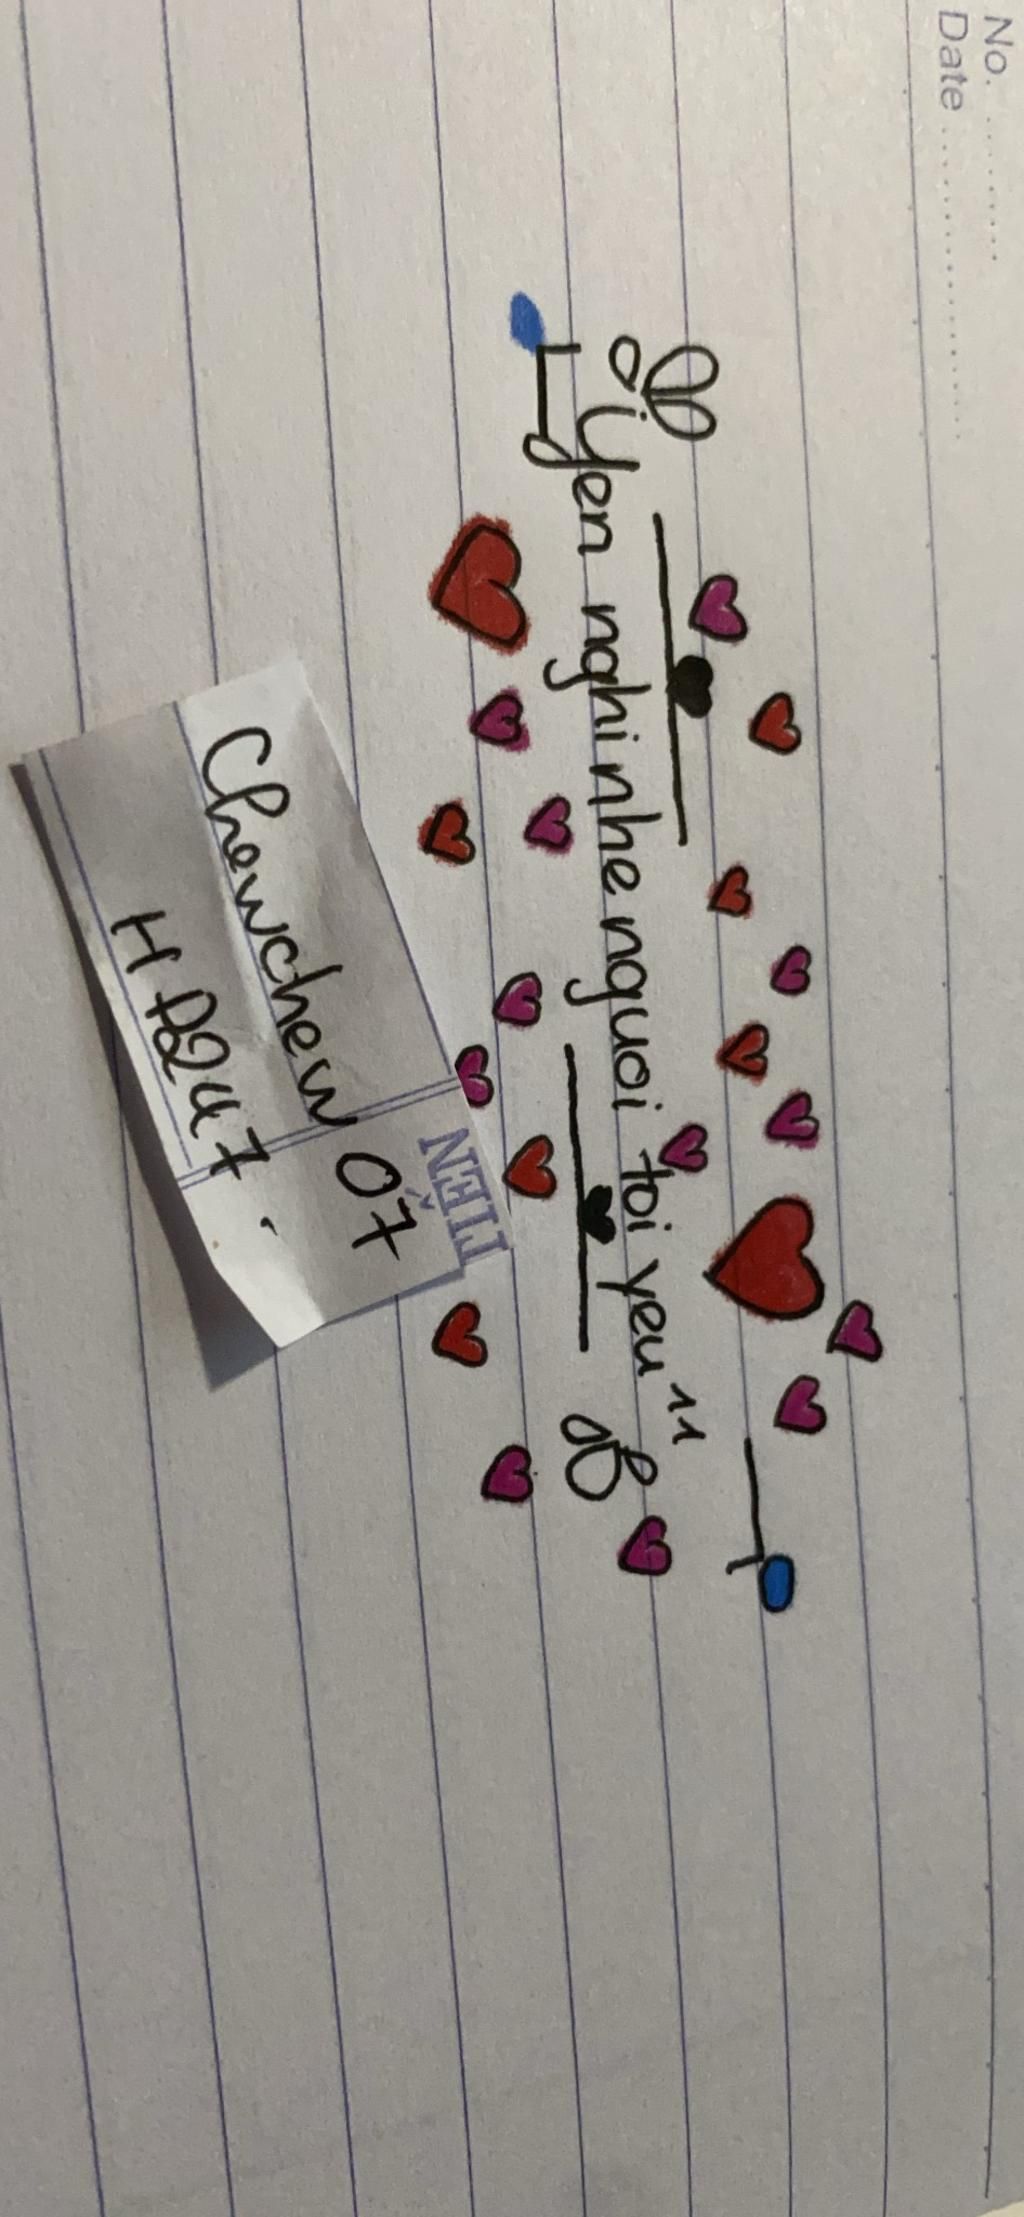 No. ............
Date ........................
yen nghi nhe nguoi toi yeu"
TIỀN
Chewchew 07